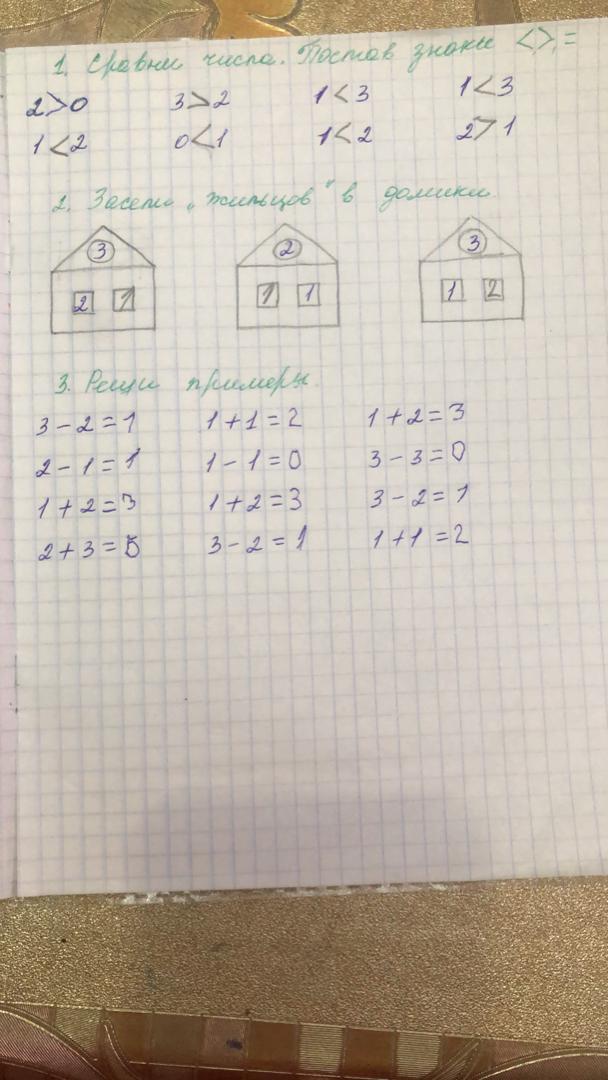 1. Сравни числа. Постав знаки <, >, =
2>0 3>2 1<3 1<3
1<2 0<1 1<2 2>1
2. Засели „жильцов" в домики
3 2 3
2 1 1 1 1 2
3. Реши примеры.
3-2=1 1+1=2 1+2=3
2-1=1 1-1=0 3-3=0
1+2=3 1+2=3 3-2=1
2+3=5 3-2=1 1+1=2